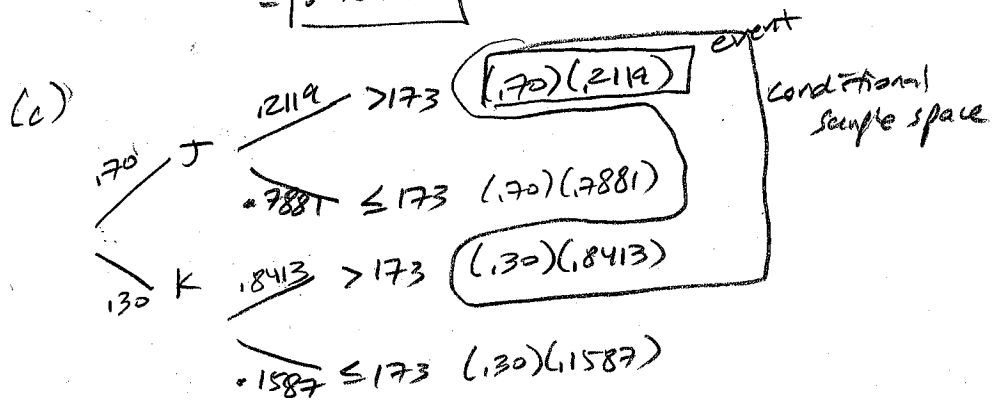 event
(c) .70 J .2119 >173 (.70)(.2119) conditional
sample space
.7881 ≤ 173 (.70)(.7881)
.30 K .8413 > 173 (.30)(.8413)
.1587 ≤ 173 (.30)(.1587)